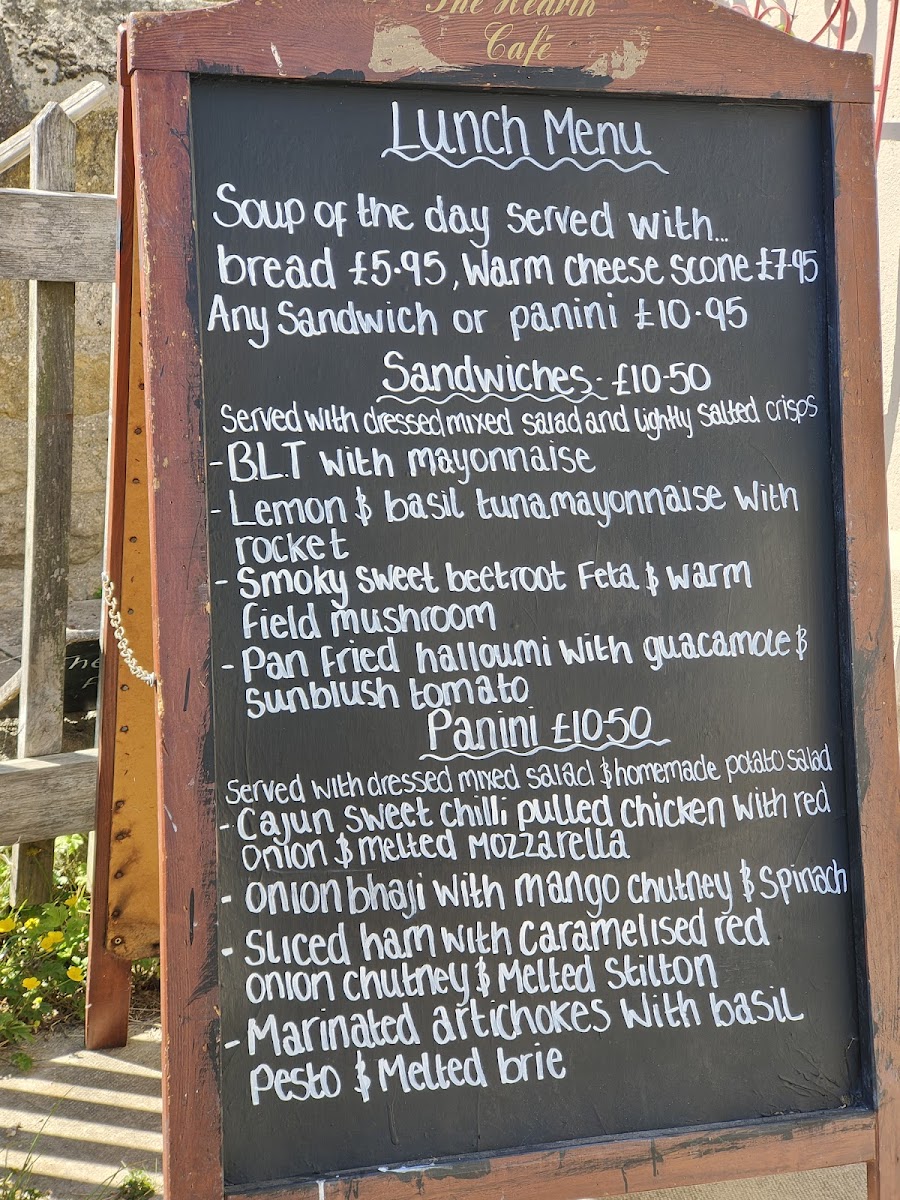 The Hearth
Café
Lunch Menu
Soup of the day served with...
bread £5.95, Warm cheese scone £7.95
Any Sandwich or panini £10.95
Sandwiches - £10.50
Served with dressed mixed salad and lightly salted crisps
- B.L.T with mayonnaise
- Lemon & basil tuna mayonnaise with
rocket
- Smoky sweet beetroot Feta & warm
field mushroom
- Pan fried halloumi with guacamole &
sunblush tomato
Panini £10.50
Served with dressed mixed salad & homemade potato salad
- Cajun sweet chilli pulled chicken with red
onion & melted mozzarella
- onion bhaji with mango chutney & spinach
- Sliced ham with caramelised red
onion chutney & Melted Stilton
- Marinated artichokes with basil
Pesto & Melted brie
he